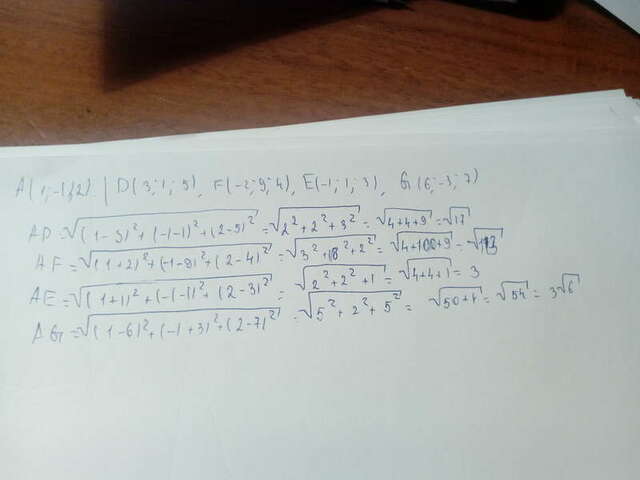 A(1; -1; 2) | D(3; 1; 5), F(-2; 9; 4), E(-1; 1; 3), G(6; -3; 7)
AD = √((1-3)² + (-1-1)² + (2-5)²) = √(2² + 2² + 3²) = √(4+4+9) = √17
AF = √((1+2)² + (-1-9)² + (2-4)²) = √(3² + 10² + 2²) = √(4+100+9) = √113
AE = √((1+1)² + (-1-1)² + (2-3)²) = √(2² + 2² + 1) = √(4+4+1) = 3
AG = √((1-6)² + (-1+3)² + (2-7)²) = √(5² + 2² + 5²) = √(50+4) = √54 = 3√6